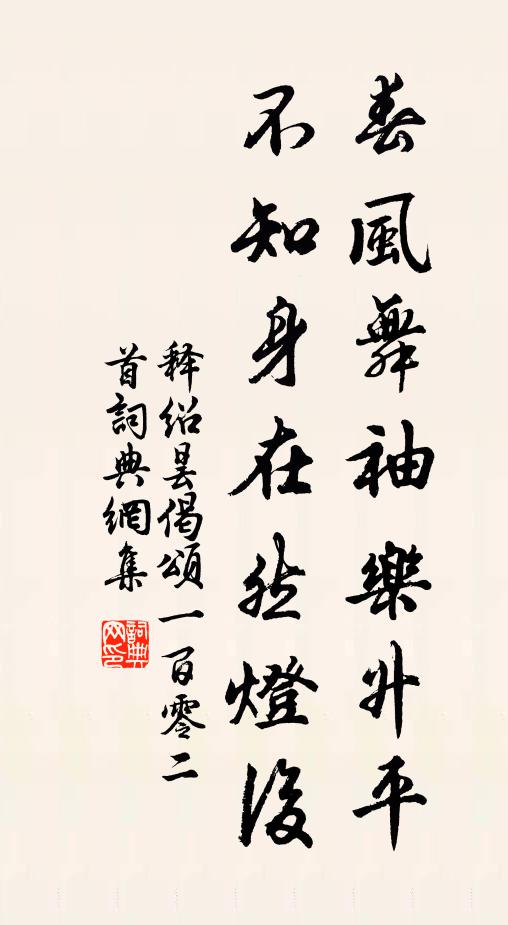 春風舞袖樂升平
不知身在然燈後
释绍昙偈頌一百零二
首詞典網集
詞典網印